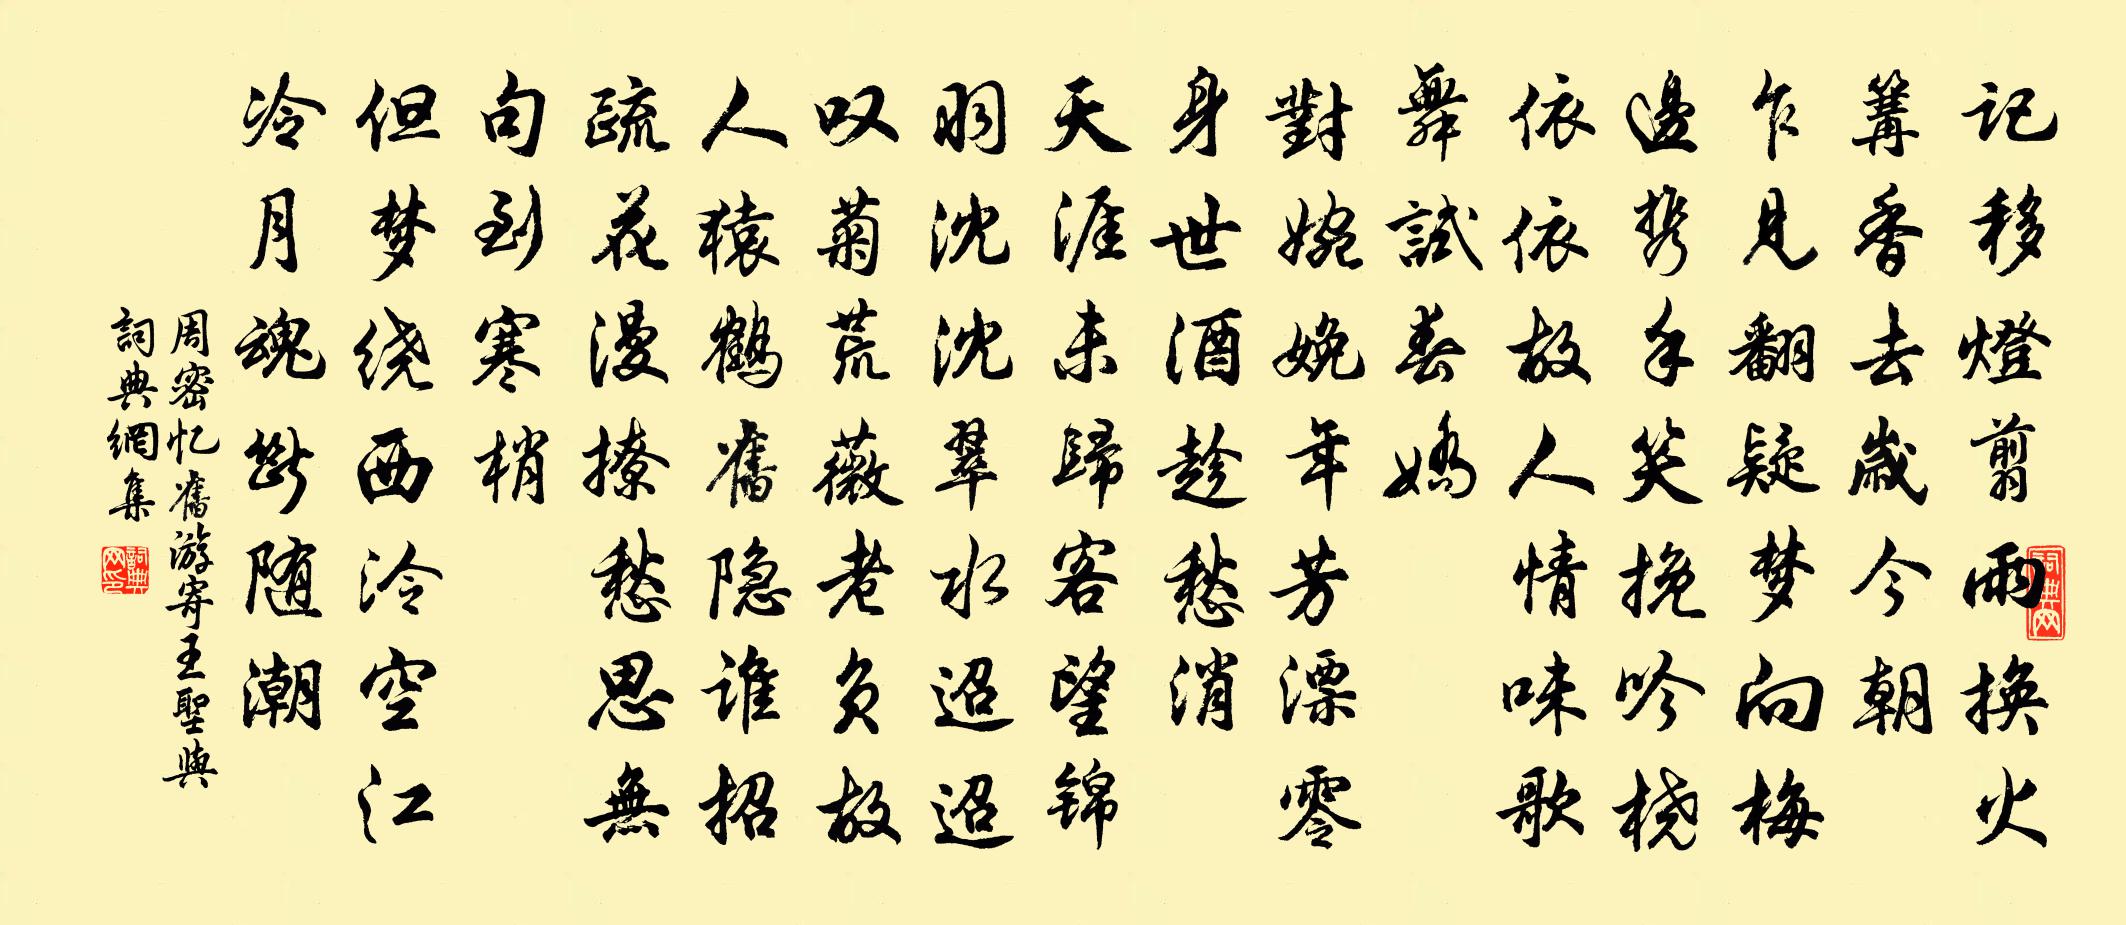 记移燈翦雨换火
篝香去歲今朝
乍見翻疑梦向梅
邊携手笑挽吟橈
依依故人情味歌
舞試春嬌
對婉娩年芳漂零
身世酒趁愁消
天涯未歸客望锦
羽沈沈翠水迢迢
叹菊荒薇老负故
人猿鶴舊隐谁招
疏花漫撩愁思無
句到寒梢
但梦绕西泠空江
冷月魂斷随潮
周密忆舊游寄王聖與
詞典網集
詞典网印
词典网